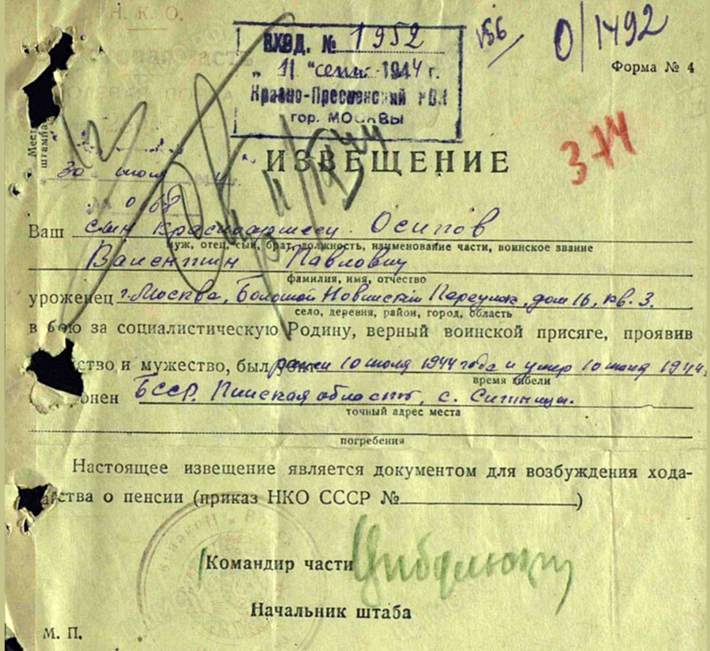 Н. К. О.
ВХОД. № 1952
„ 11 " сент. 1944 г.
Красно-Пресненский РВК
гор. МОСКВЫ
0/1492
Форма № 4
Место
штампа
374
ИЗВЕЩЕНИЕ
30 июля
Ваш сын красноармеец Осипов
муж, отец, сын, брат, должность, наименование части, воинское звание
Валентин Павлович
фамилия, имя, отчество
уроженец г. Москва, Большой Новинский Переулок, дом 16, кв. 3.
село, деревня, район, город, область
в бою за социалистическую Родину, верный воинской присяге, проявив
ство и мужество, был ранен 10 июля 1944 года и умер 10 июля 1944
время гибели
онен БССР. Пинская область, с. Ситница.
точный адрес места
погребения
Настоящее извещение является документом для возбуждения хода-
тайства о пенсии (приказ НКО СССР № )
Командир части
Начальник штаба
М. П.